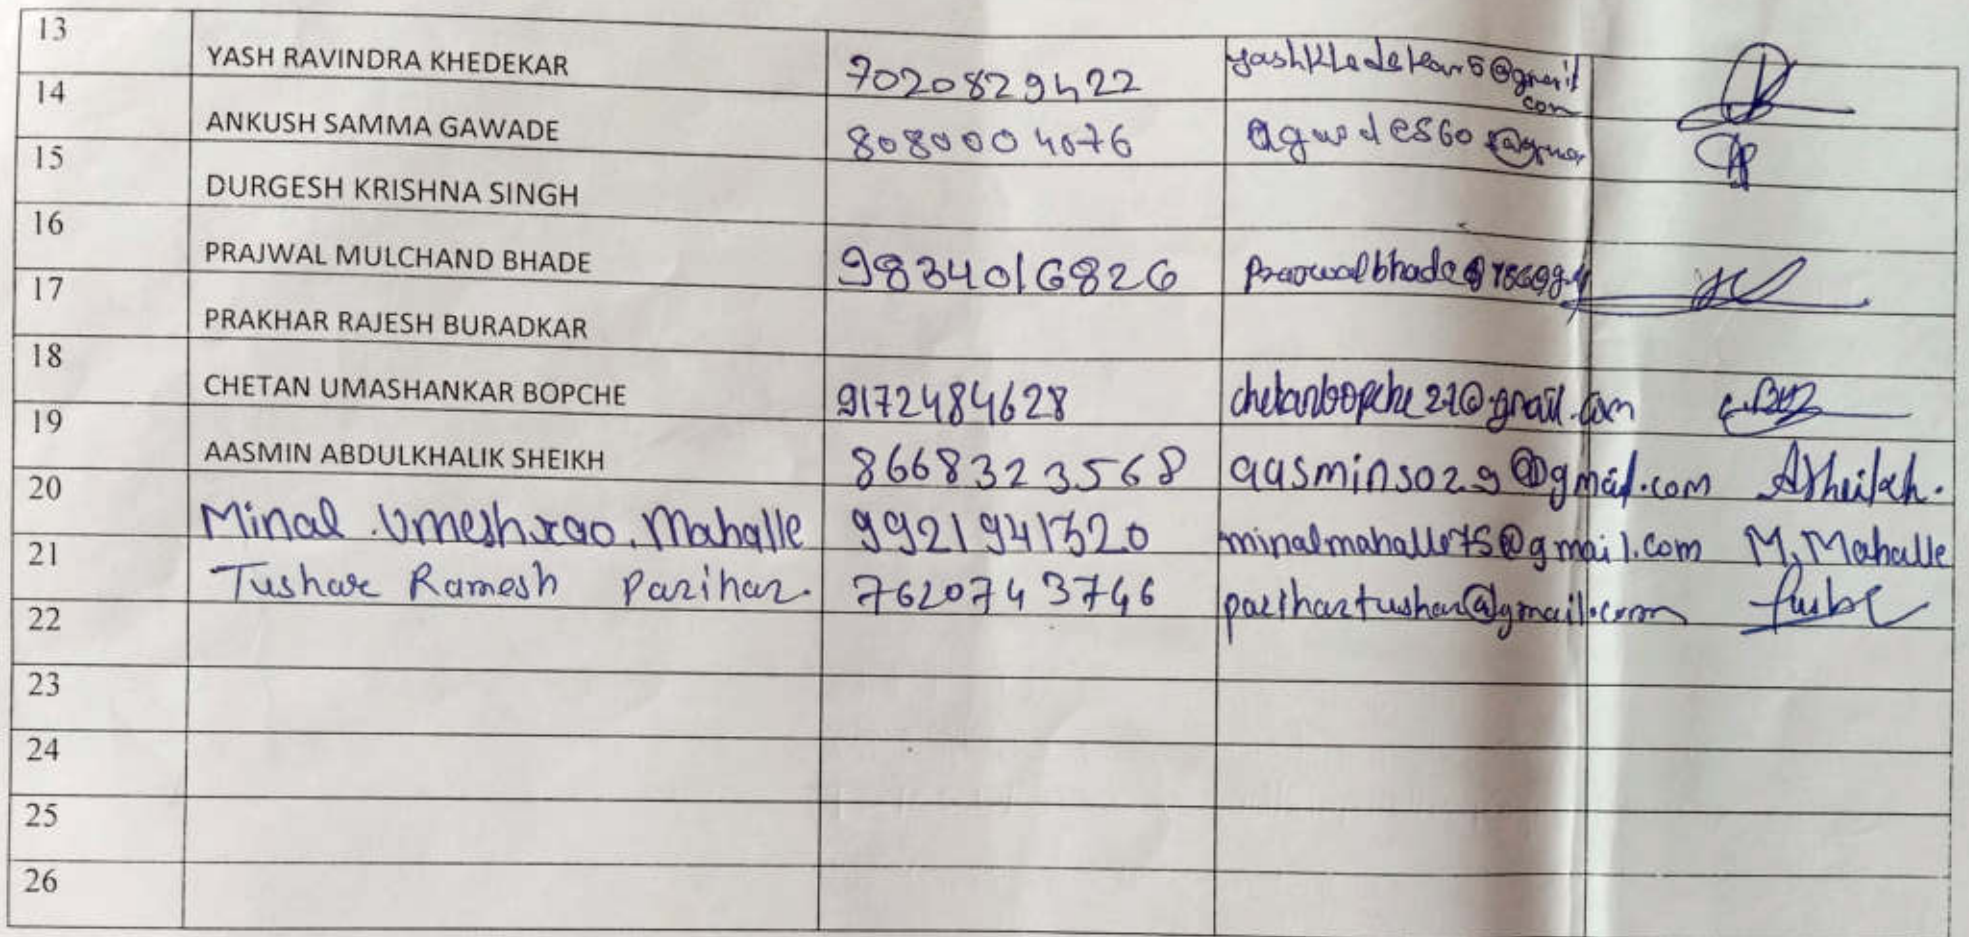 13 YASH RAVINDRA KHEDEKAR 7020829422
14 ANKUSH SAMMA GAWADE 8080004076
15 DURGESH KRISHNA SINGH
16 PRAJWAL MULCHAND BHADE 9834016826
17 PRAKHAR RAJESH BURADKAR
18 CHETAN UMASHANKAR BOPCHE 9172484628 chetanbopche27@gmail.com
19 AASMIN ABDULKHALIK SHEIKH 8668323568 aasmins029@gmail.com ASheikh.
20 Minal Umeshrao. Mahalle 9921941320 minalmahalle75@gmail.com M. Mahalle
21 Tushar Ramesh Parihar. 7620743746 parihartushar@gmail.com
22
23
24
25
26